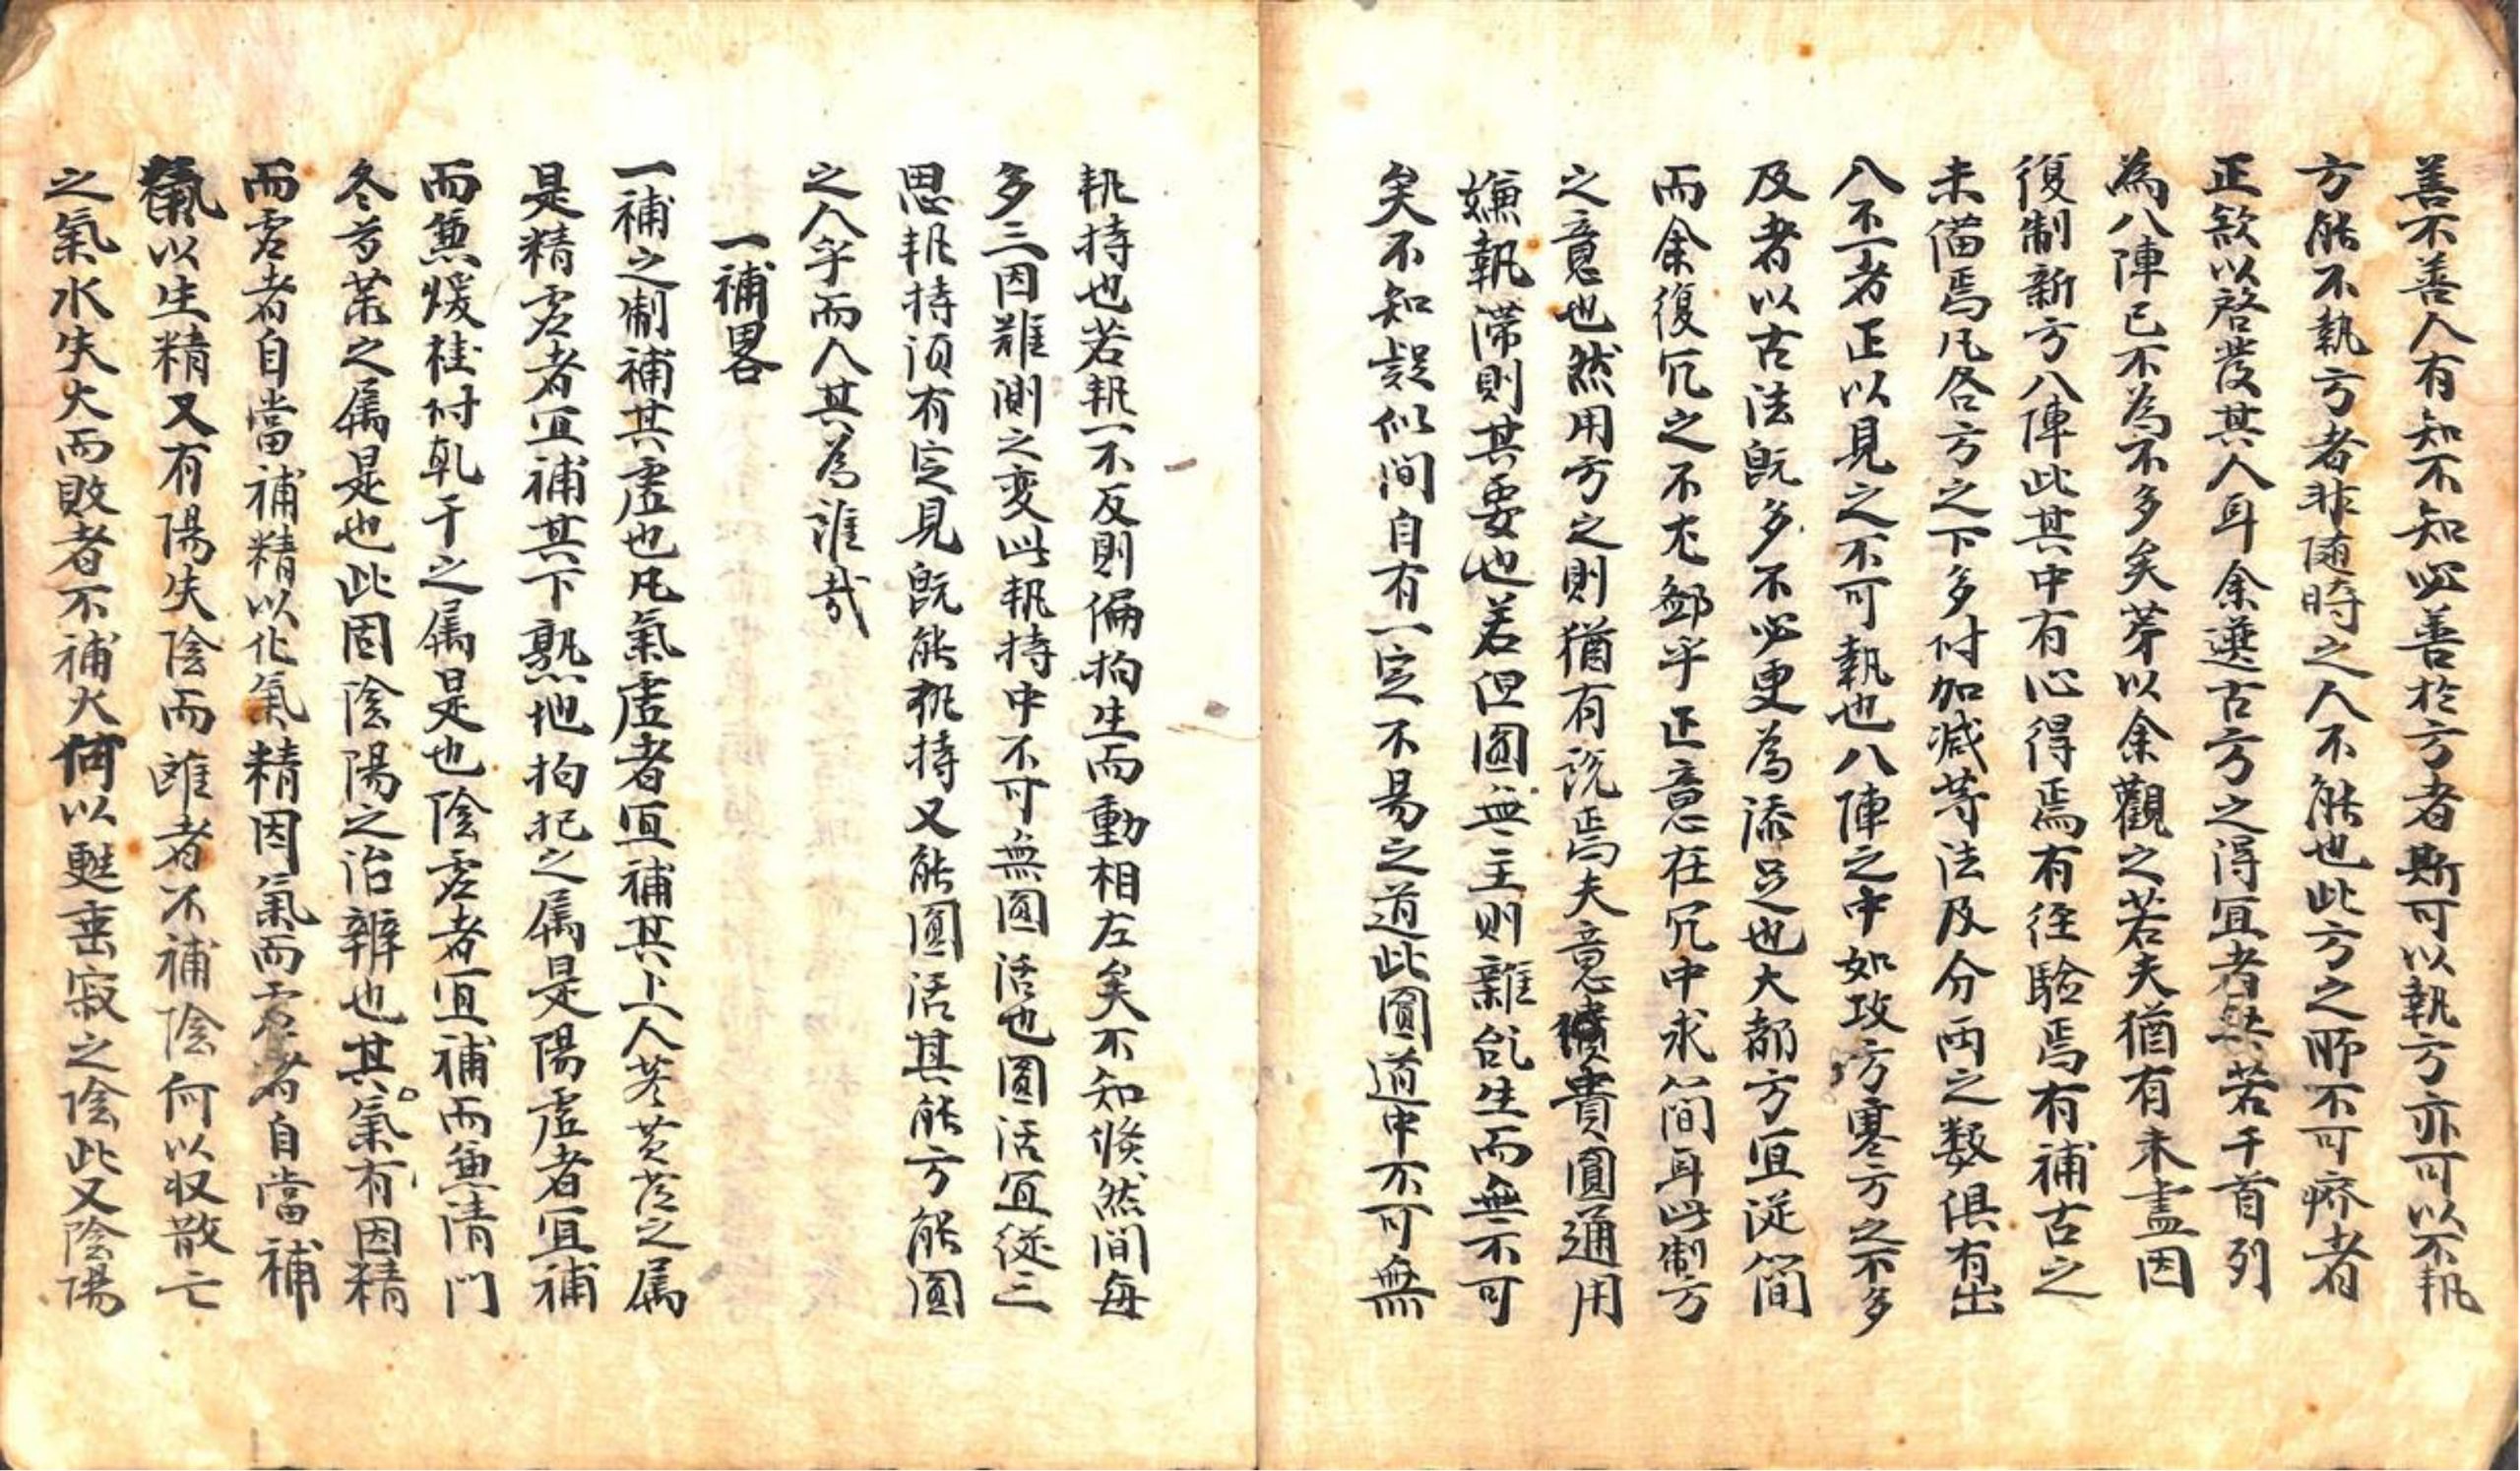 善不善人有知不知必善於方者斯可以執方亦可以不執
方能不執方者非随時之人不能也此方之所不可療者
正欲以啓發其人耳余選古方之得宜者共若干首列
為八陣已不為不多矣苐以余觀之若夫猶有未盡因
復制新方八陣此其中有心得焉有経驗焉有補古之
未備焉凡各方之下多付加减等法及分両之数俱有出
入不一者正以見之不可執也八陣之中如攻方寒方之不多
及者以古法既多不必更為添足也大都方宜從簡
而余復冗之不尤鄙乎正意在冗中求簡耳此制方
之意也然用方之則猶有説焉夫意貴圓通用
嫌執滯則其要也若但圓無主則雜乱生而無不可
矣不知疑似间自有一定不易之道此圓道中不可無
执持也若执一不反則偏拘生而動相左矣不知倐然间每
多三因难測之变此执持中不可無圓活也圓活宜從三
思执持湏有定見既能执持又能圓活其能方能圓
之人乎而人其為誰哉
一補畧
一補之制補其虛也凡氣虛者宜補其上人参黄芪之属
是精虛者宜補其下熟地枸杞之属是陽虛者宜補
而兼煖桂付乹干之属是也陰虛者宜補而兼清门
冬芍藥之属是也此固陰陽之治辨也其氣有因精
而虛者自當補精以化氣精因氣而虛者自當補
氣以生精又有陽失陰而離者不補陰何以収散亡
之氣水失火而敗者不補火何以甦垂寂之陰此又陰陽